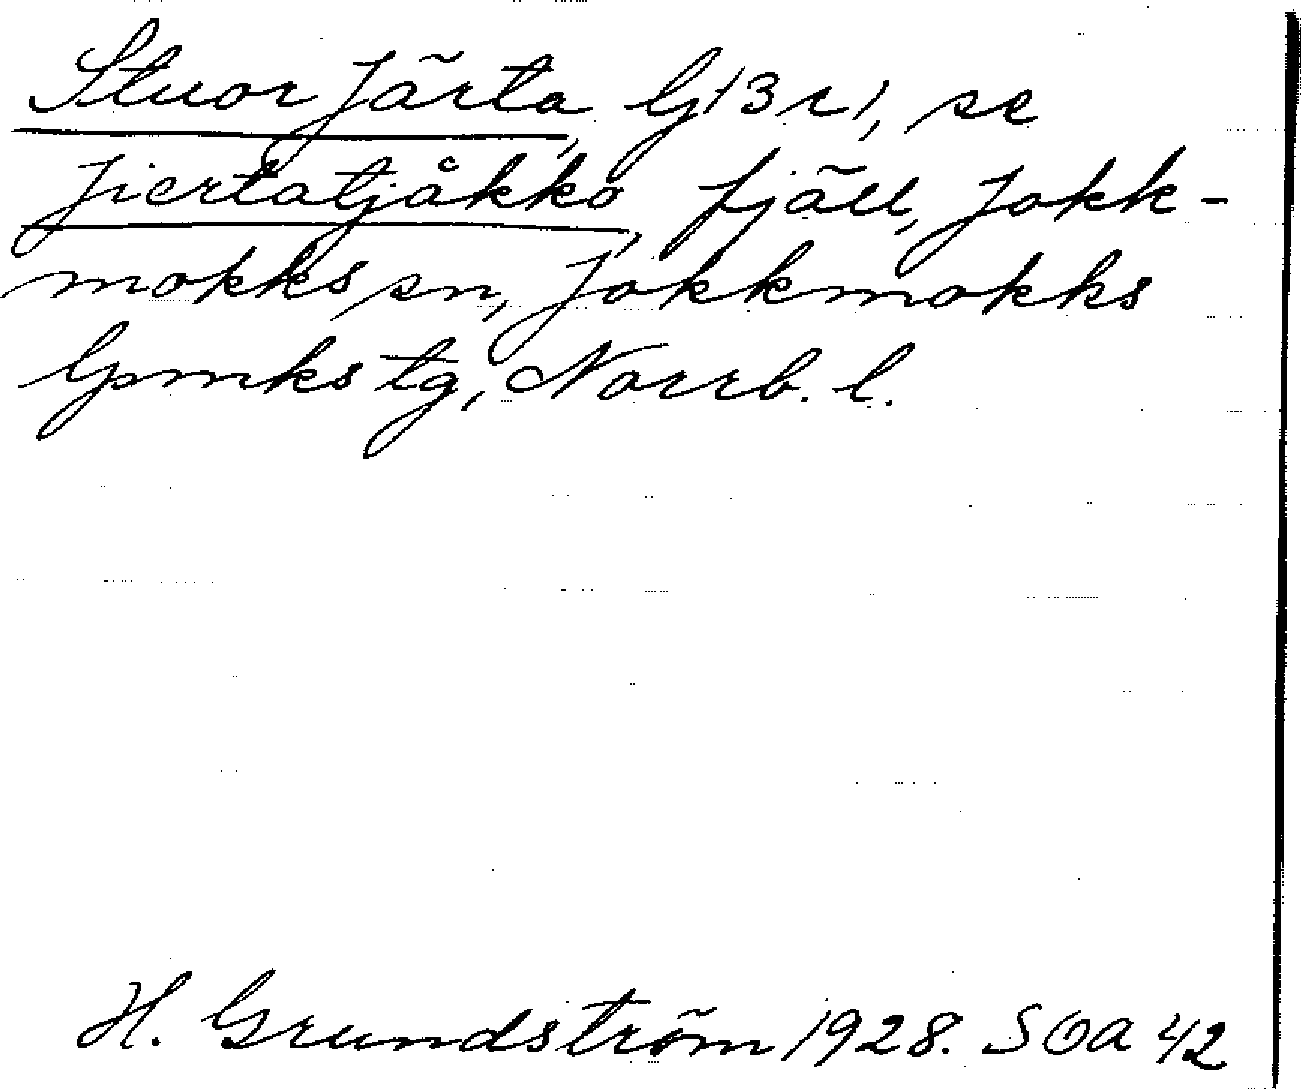 Stuor Järta, G13r1, se
Jiertatjåkkå, fjäll, Jokk-
mokks sn, Jokkmokks
lpmks tg, Norrb. l.
H. Grundström 1928. SOA 42